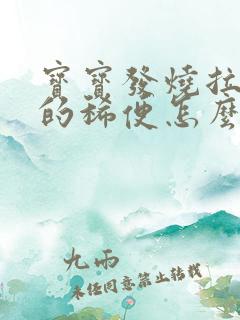 寶寶發燒拉
的稀便怎麼
九雨
未經同意禁止轉載